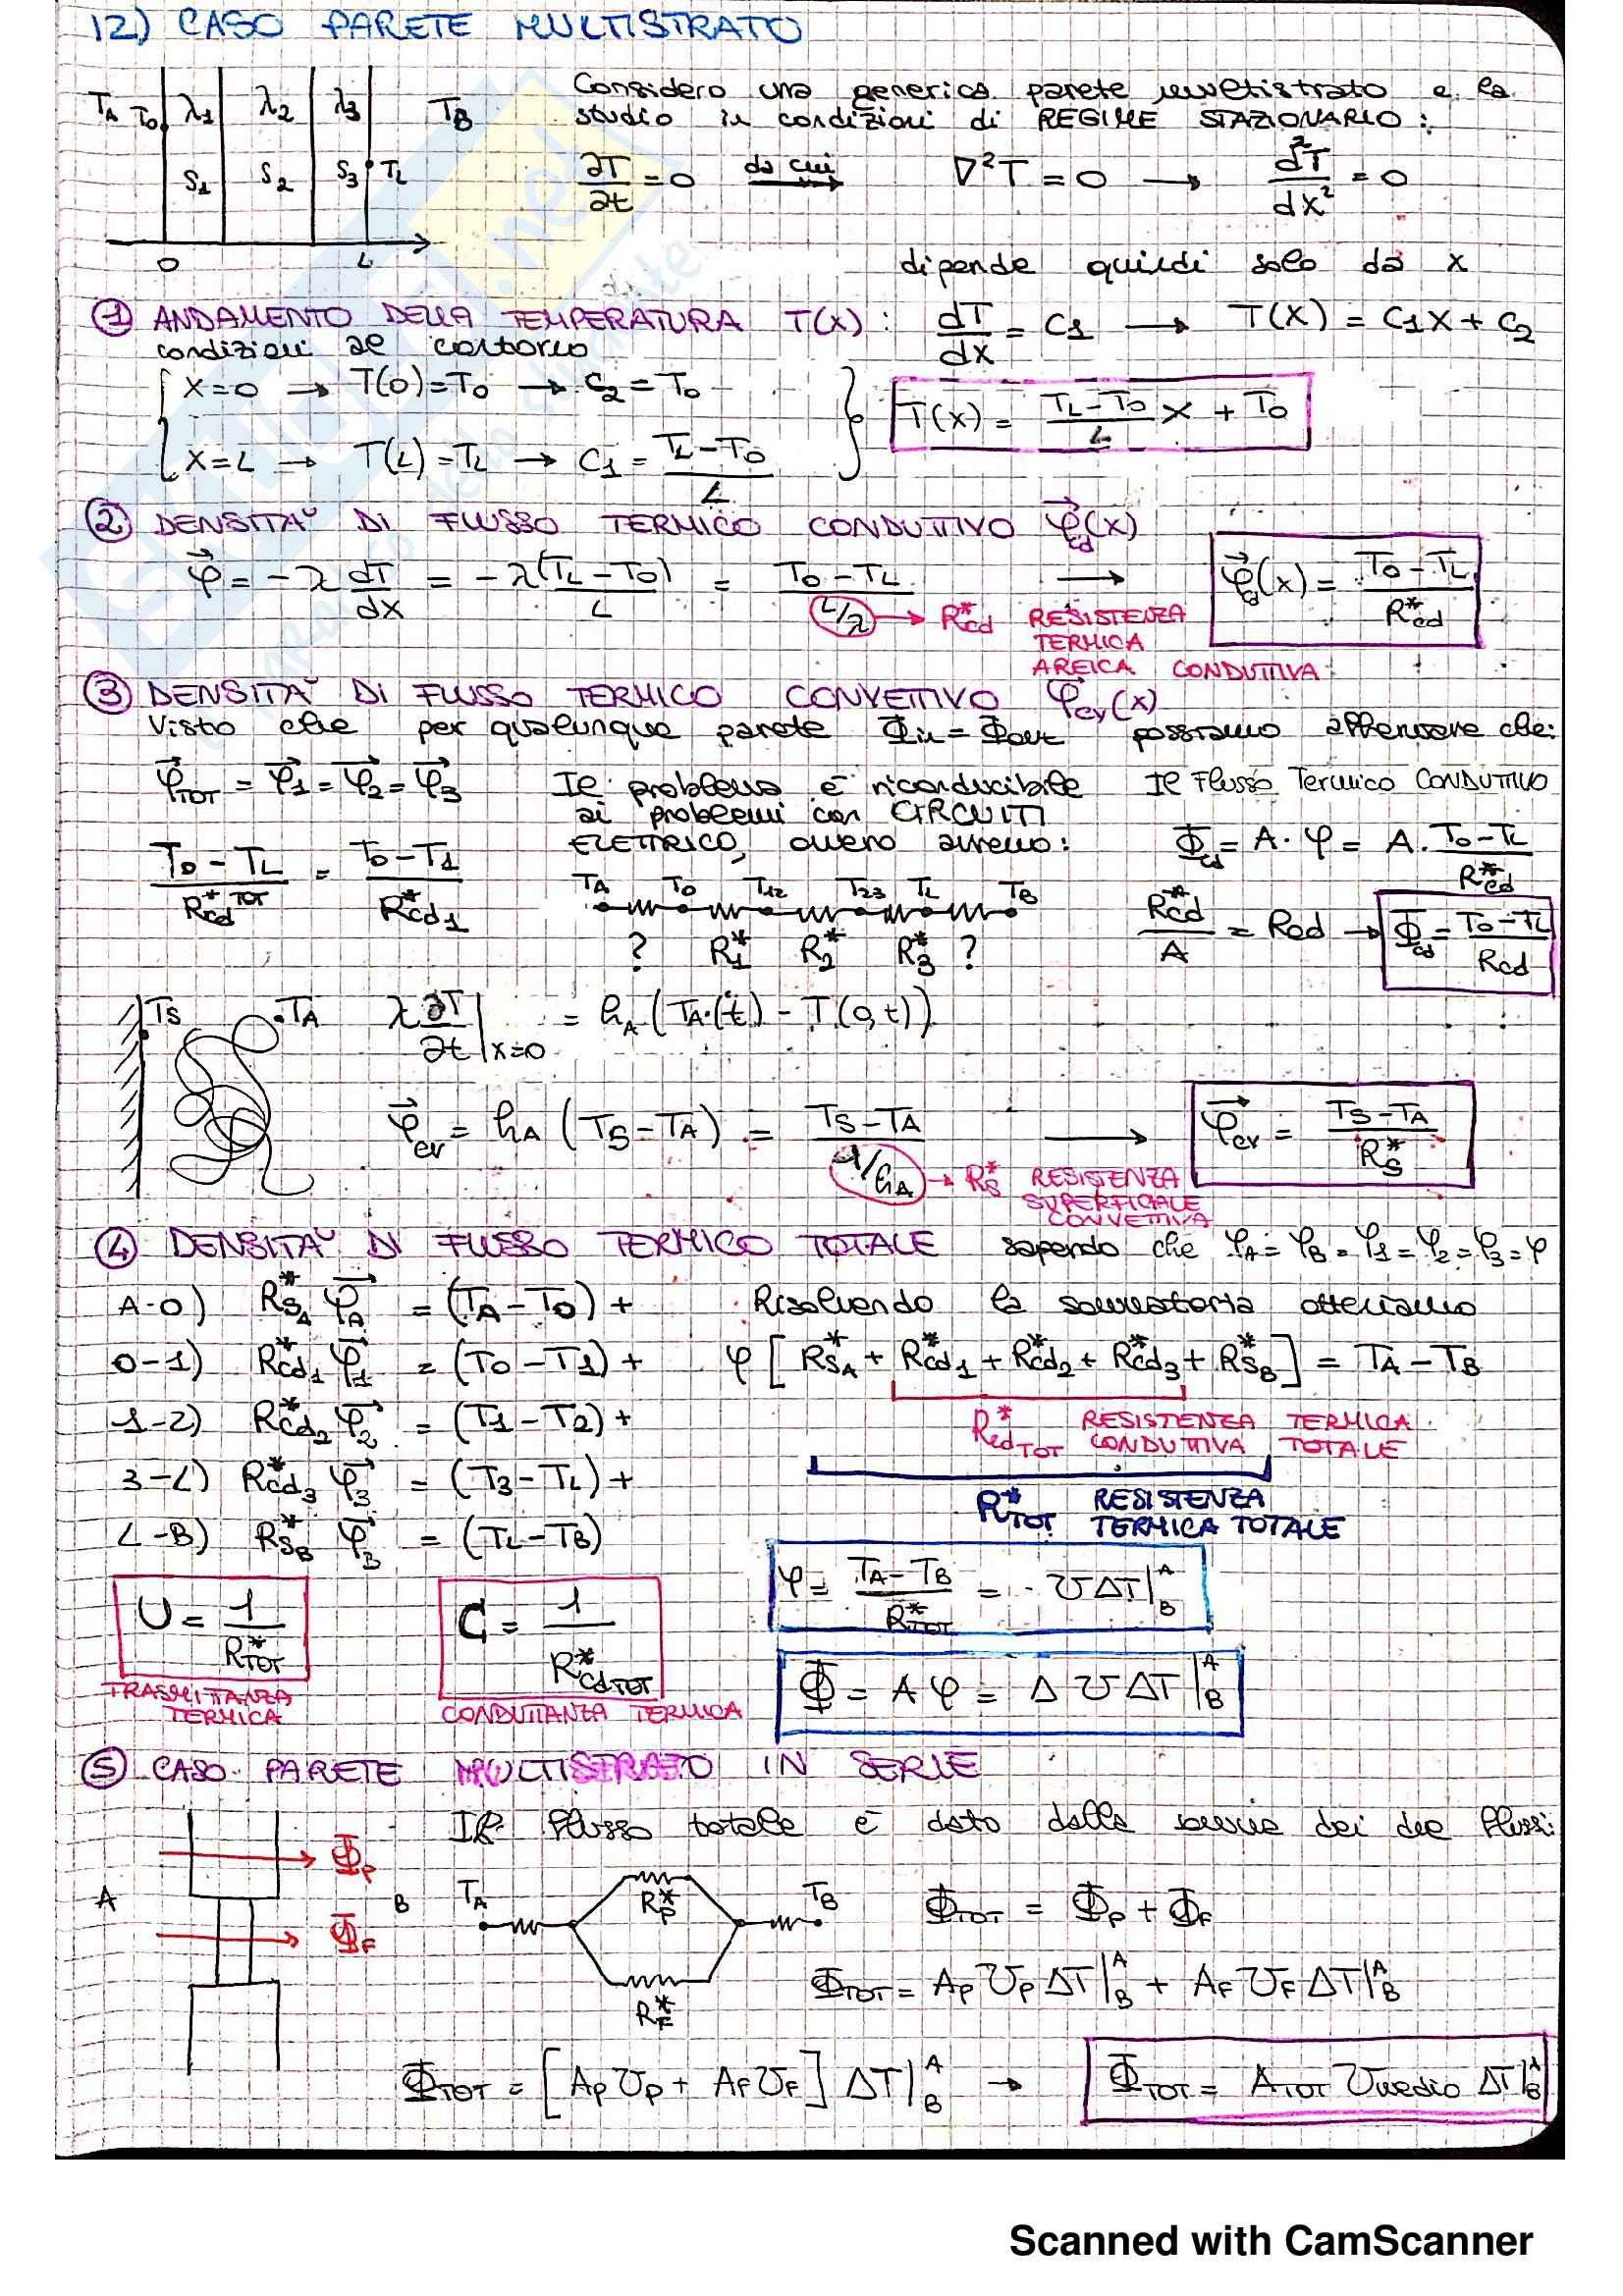 12) CASO PARETE MULTISTRATO
TA T0 λ1 λ2 λ3 TB
S1 S2 S3 TL
0 L
Considero una generica parete multistrato e la
studio in condizioni di REGIME STAZIONARIO:
∂T/∂t = 0 da cui ⟶ ∇²T = 0 → d²T/dx² = 0
dipende quindi solo da x
① ANDAMENTO DELLA TEMPERATURA T(x): dT/dx = C1 → T(x) = C1x + C2
condizioni al contorno
{ x=0 → T(0)=T0 → C2 = T0
x=L → T(L)=TL → C1 = (TL-T0)/L }
T(x) = (TL-T0)/L x + T0
② DENSITA' DI FLUSSO TERMICO CONDUTTIVO φ⃗cd(x)
φ⃗ = -λ dT/dx = -λ(TL-T0)/L = (T0-TL)/(L/λ) → φ⃗cd(x) = (T0-TL)/R*cd
→ R*cd RESISTENZA
TERMICA
AREICA CONDUTTIVA
③ DENSITA' DI FLUSSO TERMICO CONVETTIVO φ⃗cv(x)
Visto che per qualunque parete Φin = Φout possiamo affermare che:
φ⃗TOT = φ⃗1 = φ⃗2 = φ⃗3
(T0-TL)/R*cd TOT = (T0-T1)/R*cd1
Il problema è riconducibile
ai problemi con CIRCUITI
ELETTRICO, ovvero avremo:
TA T0 T12 T23 TL TB
? R*1 R*2 R*3 ?
Il Flusso Termico CONDUTTIVO
Φcd = A·φ = A·(T0-TL)/R*cd
R*cd/A = Rcd → Φcd = (T0-TL)/Rcd
TS TA
λ ∂T/∂t |x=0 = hA (TA(t) - T(0,t))
φ⃗cv = hA (TS-TA) = (TS-TA)/(1/hA) → φ⃗cv = (TS-TA)/R*S
→ R*S RESISTENZA
SUPERFICIALE
CONVETTIVA
④ DENSITA' DI FLUSSO TERMICO TOTALE sapendo che φA = φB = φ1 = φ2 = φ3 = φ
A-0) R*SA φ⃗A = (TA-T0) +
0-1) R*cd1 φ⃗1 = (T0-T1) +
1-2) R*cd2 φ⃗2 = (T1-T2) +
3-L) R*cd3 φ⃗3 = (T3-TL) +
L-B) R*SB φ⃗B = (TL-TB)
Risolvendo la sommatoria otteniamo
φ [R*SA + R*cd1 + R*cd2 + R*cd3 + R*SB] = TA-TB
R*cdTOT RESISTENZA TERMICA
CONDUTTIVA TOTALE
R*TOT RESISTENZA
TERMICA TOTALE
U = 1/R*TOT
TRASMITTANZA
TERMICA
C = 1/R*cdTOT
CONDUTTANZA TERMICA
φ = (TA-TB)/R*TOT = U ΔT|AB
Φ = A φ = A U ΔT|AB
⑤ CASO PARETE MULTISTRATO IN SERIE
Il flusso totale è dato dalla somma dei due flussi:
A ΦP B
ΦF
TA R*P TB
R*F
ΦTOT = ΦP + ΦF
ΦTOT = AP UP ΔT|AB + AF UF ΔT|AB
ΦTOT = [AP UP + AF UF] ΔT|AB → ΦTOT = ATOT Umedio ΔT|AB
Scanned with CamScanner